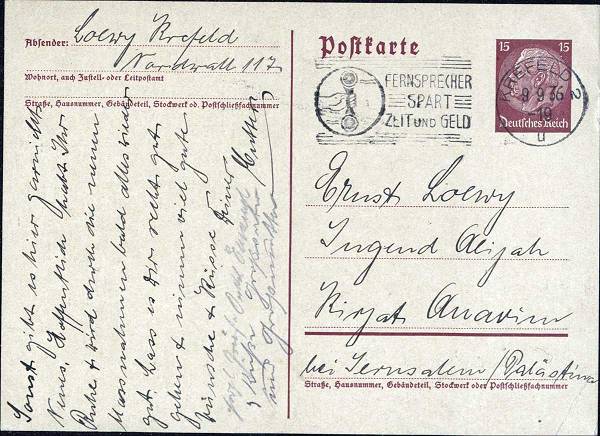 Absender: Loewy Krefeld
Nordwall 117
Wohnort, auch Zustell- oder Leitpostamt
Straße, Hausnummer, Gebäudeteil, Stockwerk od. Postschließfachnummer
Postkarte
FERNSPRECHER
SPART
ZEIT UND GELD
KREFELD 2
9 9 36
-19
u
15 15
Deutsches Reich
Ernst Loewy
Jugend Alijah
Kirjat Anavim
bei Jerusalem/Palästina
Straße, Hausnummer, Gebäudeteil, Stockwerk oder Postschließfachnummer
Sonst gibt es hier gar nichts
Neues. Hoffentlich habt Ihr
Ruhe & wird durch die neuen
Massnahmen bald alles wieder
gut. Lass es Dir recht gut
gehen & nimm viel gute
Wünsche & Küsse Deiner
Mutter